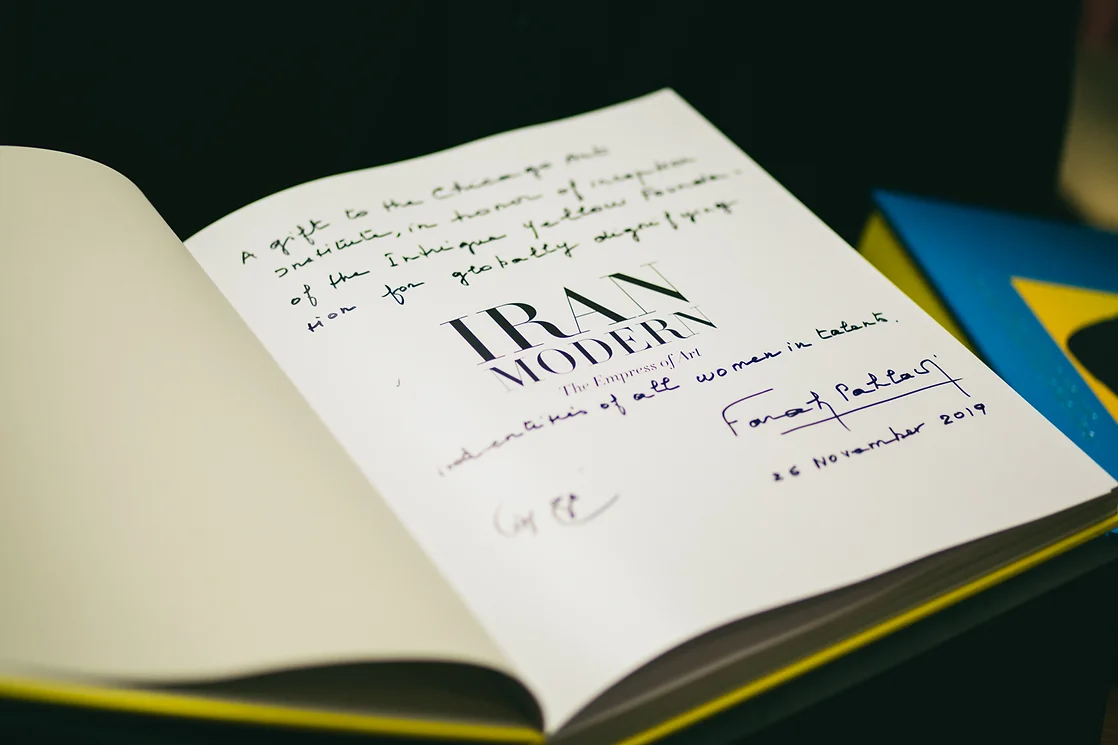 A gift to the Chicago Art
Institute, in honor of inception
of the Intrigue Yellow Founda-
tion for globally dignifying
IRAN
MODERN
The Empress of Art
indentities of all women in talents.
Farah Pahlavi
26 November 2019